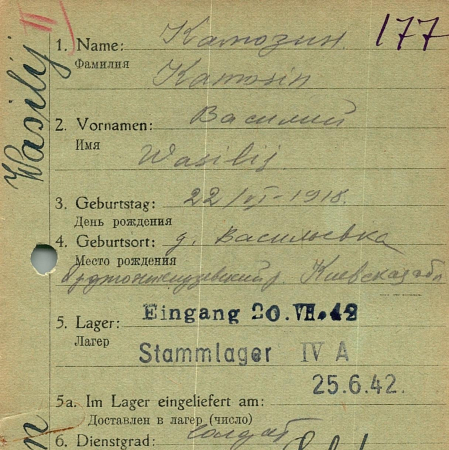 Wasilij
II
177
1. Name: Камозин
Фамилия
Kamosin
2. Vornamen: Василий
Имя
Wasilij
3. Geburtstag: 22/VI-1918.
День рождения
4. Geburtsort: д. Васильевка
Место рождения
Орджоникидзевский р. Киевская обл
5. Lager: Eingang 20. VII. 42
Лагерь
Stammlager IV A
25.6.42.
5a. Im Lager eingeliefert am:
Доставлен в лагерь (число)
6. Dienstgrad: солдат